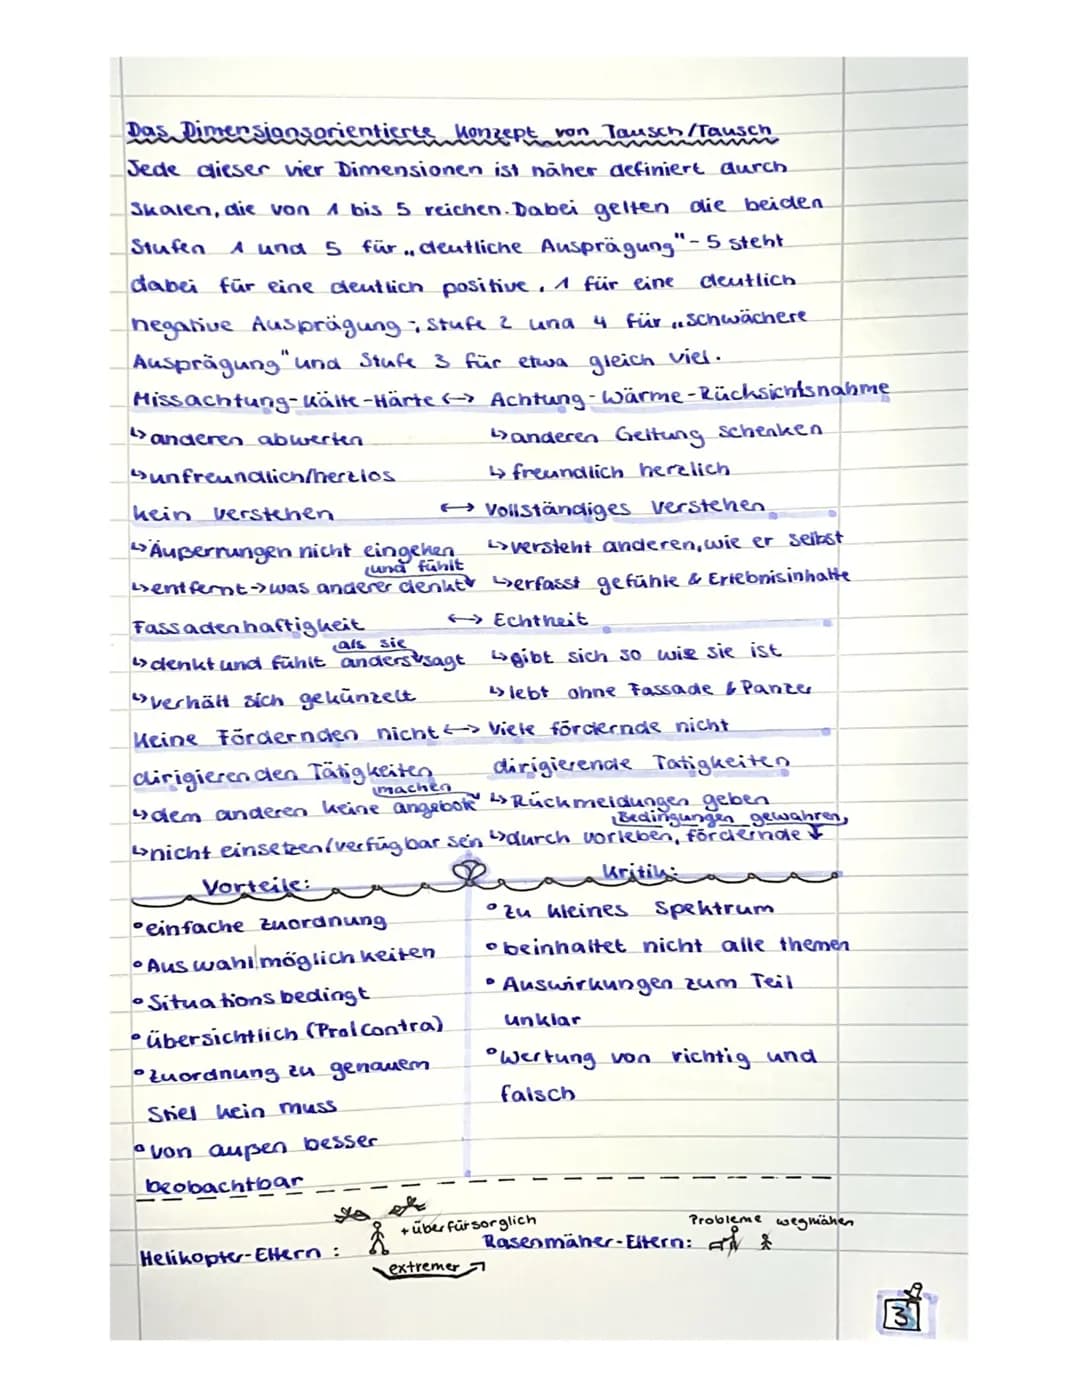 Das Dimensionsorientierte Konzept von Tausch/Tausch
Jede dieser vier Dimensionen ist näher definiert durch
Skalen, die von 1 bis 5 reichen. Dabei gelten die beiden
Stufen 1 und 5 für „deutliche Ausprägung" - 5 steht
dabei für eine deutlich positive, 1 für eine deutlich
negative Ausprägung -, Stufe 2 und 4 für „schwächere
Ausprägung" und Stufe 3 für etwa gleich viel.
Missachtung-Kälte-Härte <-> Achtung-Wärme-Rücksichtsnahme
↳ anderen abwerten ↳ anderen Geltung schenken
↳ unfreundlich/herzlos ↳ freundlich herzlich
kein verstehen <-> Vollständiges Verstehen
↳ Äußerrungen nicht eingehen ↳ versteht anderen, wie er selbst
und fühlt
↳ entfernt -> was anderer denkt ↳ erfasst gefühle & Erlebnisinhalte
Fassadenhaftigkeit <-> Echtheit
als sie
↳ denkt und fühlt anders sagt ↳ gibt sich so wie sie ist
↳ verhält sich gekünzelt ↳ lebt ohne Fassade & Panzer
Keine Fördernden nicht <-> Viele fördernde nicht
dirigierenden Tätigkeiten dirigierende Tätigkeiten
machen
↳ dem anderen keine angebote ↳ Rückmeldungen geben
Bedingungen gewahren,
↳ nicht einsetzen/verfügbar sein ↳ durch vorleben, fördernde
Vorteile: Kritik:
• einfache zuordnung • zu kleines Spektrum
• Auswahlmöglichkeiten • beinhaltet nicht alle themen
• Situationsbedingt • Auswirkungen zum Teil
• übersichtlich (Pro/Contra) unklar
• Zuordnung zu genauem • Wertung von richtig und
Stiel kein muss falsch
• von außen besser
beobachtbar
+ überfürsorglich Probleme wegmähen
Helikopter-Eltern : Rasenmäher-Eltern:
extremer
3